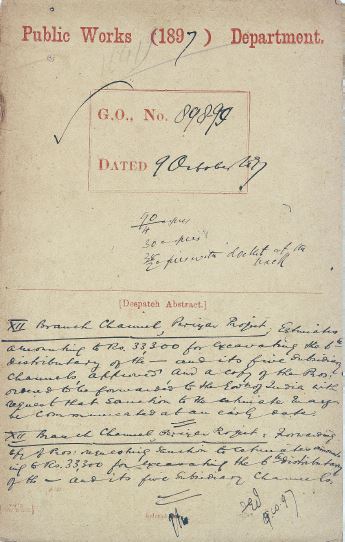 Public Works (1897) Department.
G.O., No.
DATED 9 October 1897
90 copies
30 copies
copies with docket at the
back
[Despatch Abstract.]
XII Branch Channel, Periyar Project, Estimates
amounting to Rs. 33,300 for excavating the 6th
distributary of the — and its five subsidiary
channels approved and a copy of the Pros:
ordered to be forwarded to the Govt of India with
request that sanction to the estimate may
be communicated at an early date.
XII Branch Channel, Periyar Project: Forwarding
copy of Pros: requesting sanction to estimates amount-
ing to Rs. 33300 for excavating the 6th distributary
of the — and its five subsidiary Channels.